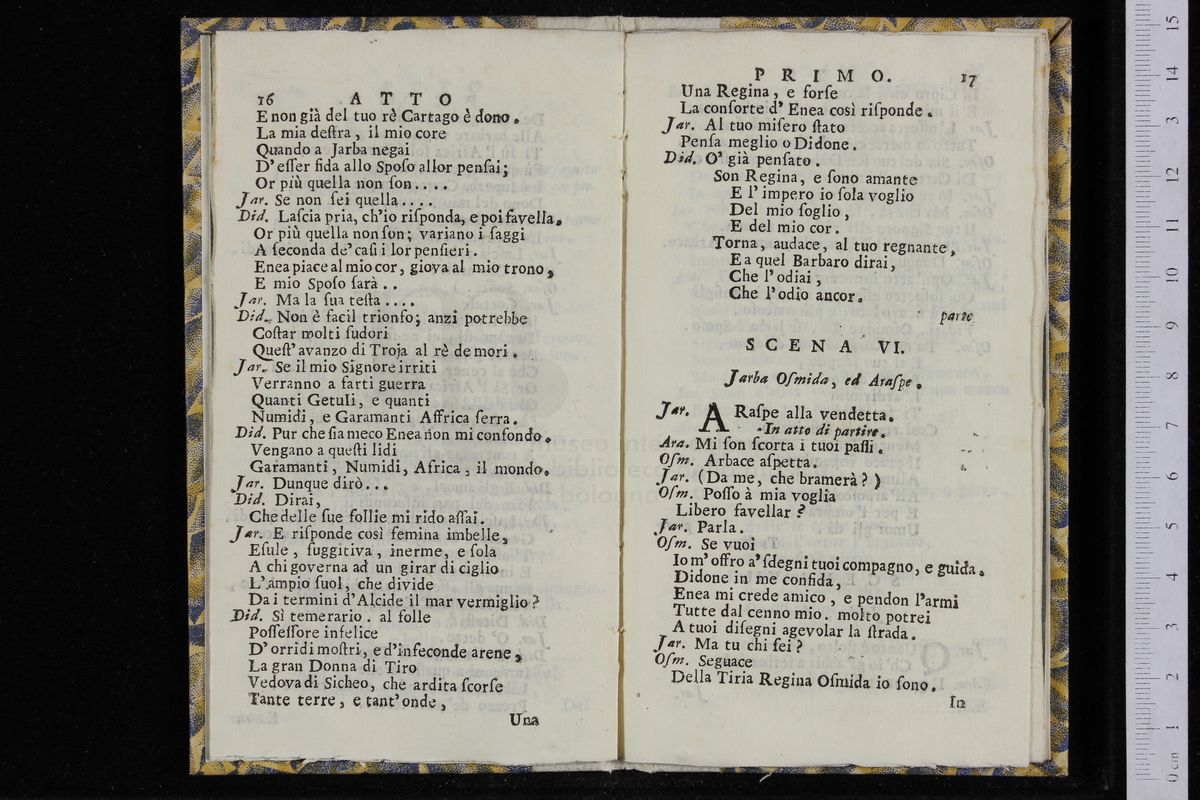 16 ATTO
E non già del tuo rè Cartago è dono.
La mia deſtra, il mio core
Quando a Jarba negai
D'eſſer fida allo Spoſo allor penſai;
Or più quella non ſon....
Jar. Se non ſei quella....
Did. Laſcia pria, ch'io riſponda, e poi favella.
Or più quella non ſon; variano i ſaggi
A ſeconda de' caſi i lor penſieri.
Enea piace al mio cor, giova al mio trono,
E mio Spoſo ſarà ..
Jar. Ma la ſua teſta....
Did. Non è facil trionfo; anzi potrebbe
Coſtar molti ſudori
Queſt'avanzo di Troja al rè de mori.
Jar. Se il mio Signore irriti
Verranno a farti guerra
Quanti Getuli, e quanti
Numidi, e Garamanti Affrica ſerra.
Did. Pur che ſia meco Enea non mi confondo.
Vengano a queſti lidi
Garamanti, Numidi, Africa, il mondo.
Jar. Dunque dirò...
Did. Dirai,
Che delle ſue follie mi rido aſſai.
Jar. E riſponde così femina imbelle,
Eſule, fuggitiva, inerme, e ſola
A chi governa ad un girar di ciglio
L'ampio ſuol, che divide
Da i termini d'Alcide il mar vermiglio?
Did. Sì temerario. al folle
Poſſeſſore infelice
D'orridi moſtri, e d'infeconde arene,
La gran Donna di Tiro
Vedova di Sicheo, che ardita ſcorſe
Tante terre, e tant'onde,
Una
PRIMO. 17
Una Regina, e forſe
La conſorte d'Enea così riſponde.
Jar. Al tuo miſero ſtato
Penſa meglio o Didone.
Did. O' già penſato.
Son Regina, e ſono amante
E l'impero io ſola voglio
Del mio ſoglio,
E del mio cor.
Torna, audace, al tuo regnante,
E a quel Barbaro dirai,
Che l'odiai,
Che l'odio ancor.
parte
SCENA VI.
Jarba Oſmida, ed Araſpe.
Jar. ARaſpe alla vendetta.
In atto di partire.
Ara. Mi ſon ſcorta i tuoi paſſi.
Oſm. Arbace aſpetta.
Jar. (Da me, che bramerà?)
Oſm. Poſſo à mia voglia
Libero favellar?
Jar. Parla.
Oſm. Se vuoi
Io m'offro a'ſdegni tuoi compagno, e guida.
Didone in me confida,
Enea mi crede amico, e pendon l'armi
Tutte dal cenno mio. molto potrei
A tuoi diſegni agevolar la ſtrada.
Jar. Ma tu chi ſei?
Oſm. Seguace
Della Tiria Regina Oſmida io ſono.
In